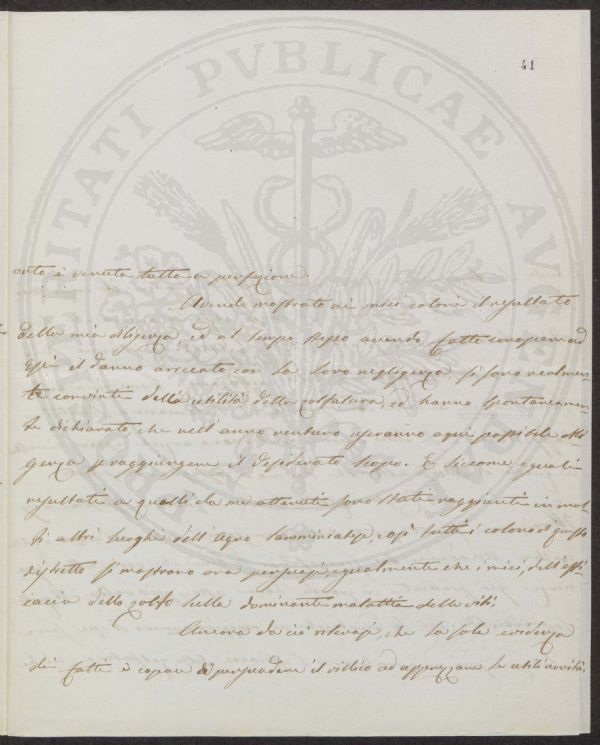 41
PROSPERITATI PVBLICAE AVGENDAE
outo è venuta tutta a perfezione.
Avendo mostrato ai miei coloni il resultato
della mia diligenza, ed al tempo stesso avendo fatto conoscere ad
Essi il danno arrecato con la loro negligenza si sono realmen-
te convinti della utilità della zolfatura, ed hanno spontaneamen-
te dichiarato, che nell'anno venturo useranno ogni possibile dili
genza p raggiungere il desiderato scopo. E siccome eguali
resultati a quelli da me ottenuti sono stati raggiunti in mol-
ti altri luoghi dell'Agro Samminiatese, così tutti i coloni di questo
distretto si mostrano ora persuasi, egualmente che i miei, dell'effi
cacia dello zolfo sulla dominante malattia delle viti.
Ancora da ciò rilevasi, che la sola evidenza
dei fatti è capace di persuadere il villico ad apprezzare le utili novità.